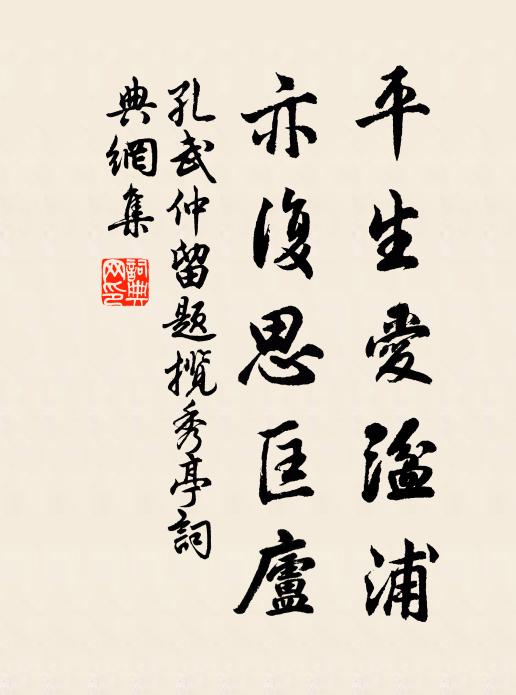 平生愛湓浦
亦復思匡廬
孔武仲留題攬秀亭詞
典網集
詞典
网印